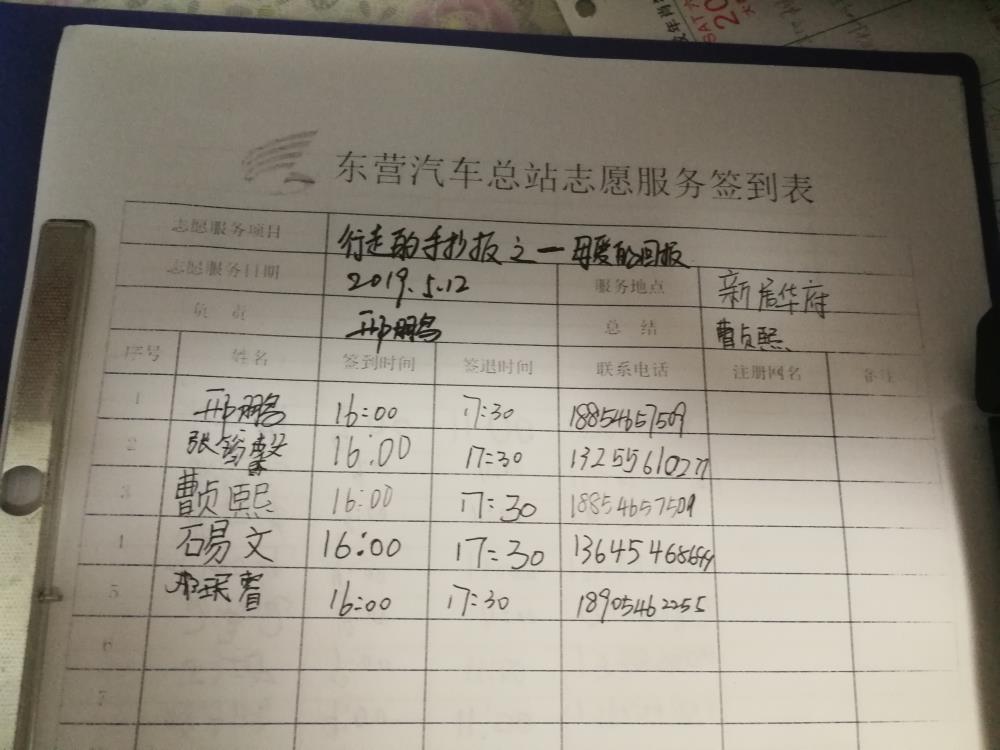 SAT 六
20
东营汽车总站志愿服务签到表
志愿服务项目 行走的手抄报之一母爱的回报
志愿服务日期 2019.5.12 服务地点 新居华府
负责 邢鹏 总结 曹贞熙
序号 姓名 签到时间 签退时间 联系电话 注册网名 备注
1 邢鹏 16:00 17:30 18854657509
2 张筠馨 16:00 17:30 13255610277
3 曹贞熙 16:00 17:30 18854657509
4 石易文 16:00 17:30
5 16:00 17:30 18905462255
6
7